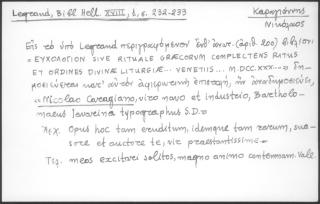 Legrand, Bibl. Hell. XVIII, 1, σ. 232-233
Καραγιάννης
Νικόλαος
Εἰς τὸ ὑπὸ Legrand περιγραφόμενον ὑπ' (ἀριθ. 200) βιβλίον
«ΕΥΧΟΛΟΓΙΟΝ SIVE RITUALE GRÆCORUM COMPLECTENS RATUS
ET ORDINES DIVINÆ LITURGIÆ... VENETIIS... M.DCC.XXX...»
κατ' αὐτὸν ἀφιερωτικὴ ἐπιστολή, ἣν ἀναδημοσιεύει,
«Nicolao Caragiano, viro navo et industrio, Bartholo-
maeus Javarina typographus S.D.»
Ἀρχ. Opus hoc tam eruditum, idemque tam rarum, sua-
sore et auctore te, vir praestantissime.
Τελ. meos excitari solitos, magno animo contemnam. Vale.